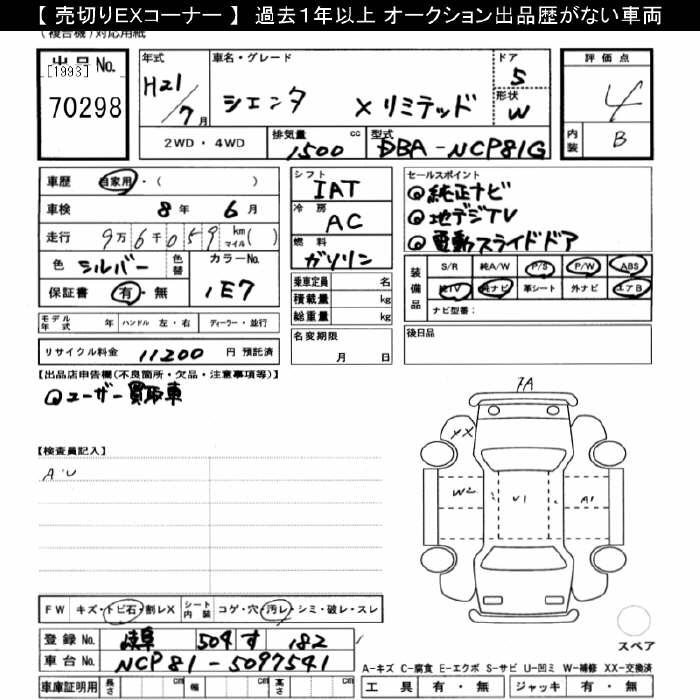 【 売切りEXコーナー 】 過去１年以上 オークション出品歴がない車両
(複合機)対応用紙
出品No. [1993] 70298
年式 H21/7月
車名・グレード シエンタ Xリミテッド
ドア 5
形状 W
評価点 4
内装 B
2WD・4WD
排気量 1500 cc
型式 DBA-NCP81G
車歴 自家用・( )
車検 8年 6月
走行 9万6千059 km マイル( )
色 シルバー 色替
カラーNo. 1E7
保証書 有・無
シフト IAT
冷房 AC
燃料 ガソリン
乗車定員 名
積載量 kg
総重量 kg
名変期限 月 日
セールスポイント
純正ナビ
地デジTV
電動スライドドア
装備品 S/R 純A/W P/S P/W ABS
純TV 純ナビ 革シート 外ナビ エアB
ナビ型番:
後日品
モデル年式 年 ハンドル 左・右 ディーラー・並行
リサイクル料金 11200 円 預託済
【出品店申告欄(不良箇所・欠品・注意事項等)】
ユーザー買取車
【検査員記入】
AU
7A
XX
W2
U1
A1
FW キズ・トビ石・割レX シート内装 コゲ・穴・汚レ・シミ・破レ・スレ
登録No. 岐阜 504 す 182
車台No. NCP81-5097541
車庫証明用 長さ cm 幅 cm 高さ cm
スペア
A-キズ C-腐食 E-エクボ S-サビ U-凹ミ W-補修 XX-交換済
工具 有・無 ジャッキ 有・無